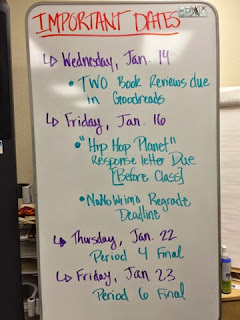 IMPORTANT DATES
↳ Wednesday, Jan. 14
• TWO Book Reviews due
in Goodreads
↳ Friday, Jan. 16
• "Hip Hop Planet"
Response letter Due
[Before Class]
• NaNoWrimo Regrade
Deadline
↳ Thursday, Jan. 22
Period 4 Final
↳ Friday, Jan 23
Period 6 Final